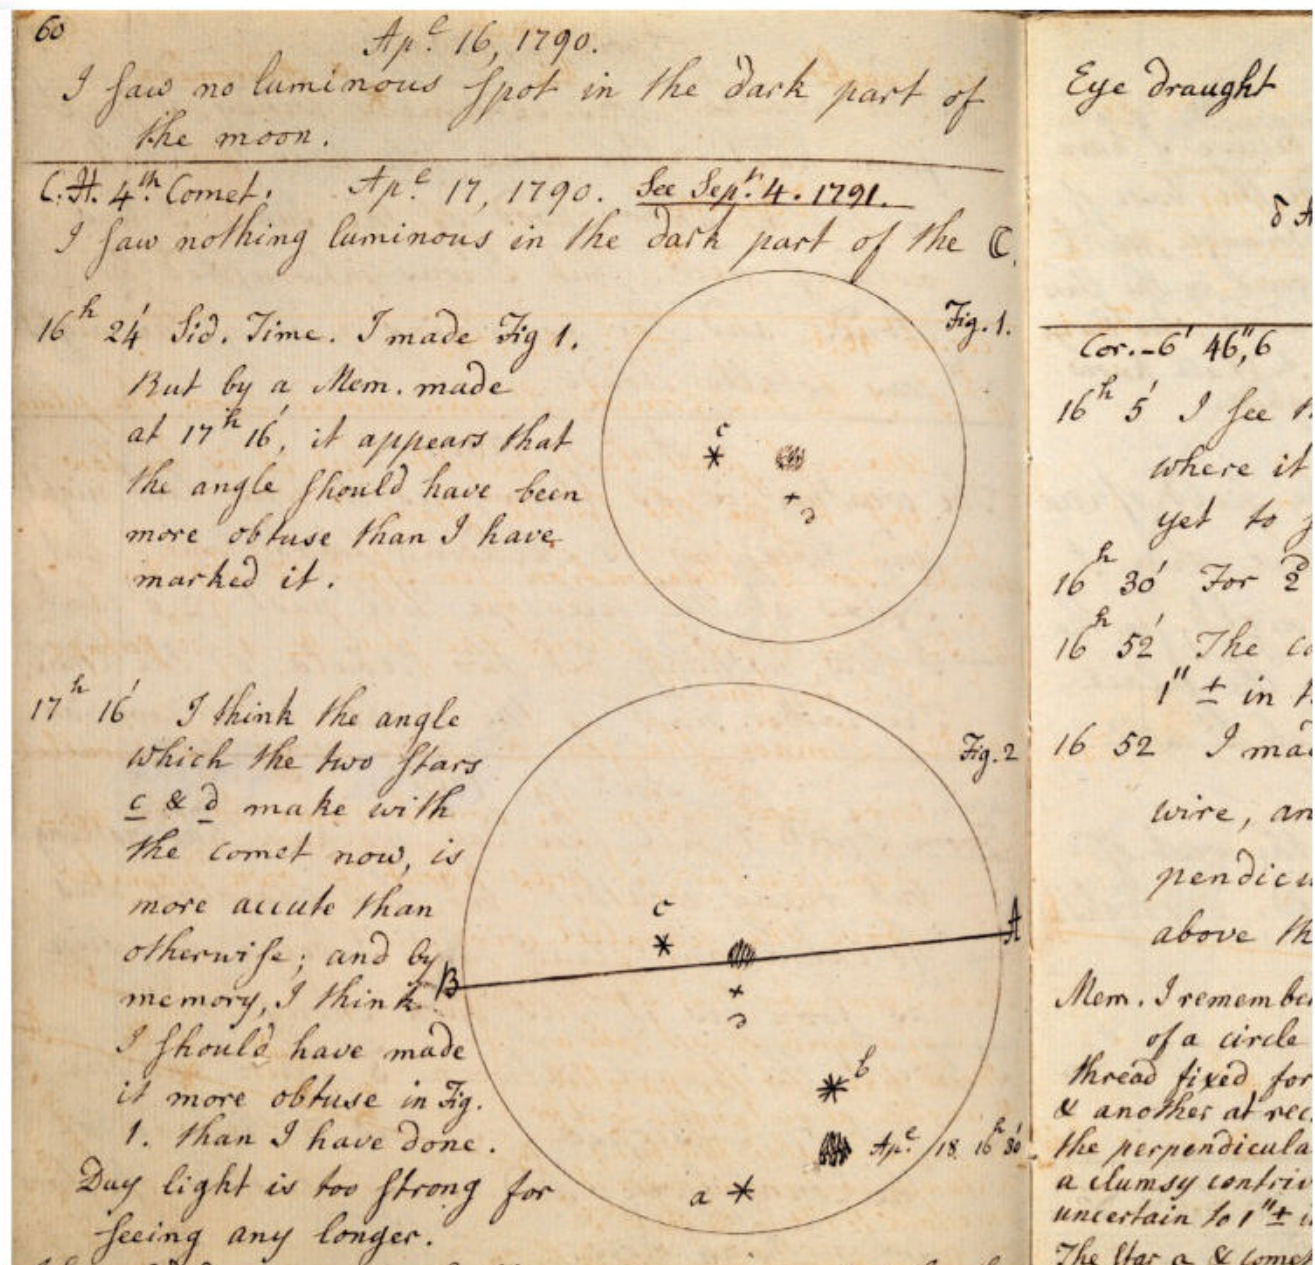 60
Ap.l 16, 1790.
I saw no luminous spot in the dark part of
the moon.
C.H. 4th Comet. Ap.l 17, 1790. See Sept. 4. 1791.
I saw nothing luminous in the dark part of the ☾.
Fig. 1.
16h 24' Sid. Time. I made Fig 1.
But by a Mem. made
at 17h 16', it appears that
the angle should have been
more obtuse than I have
marked it.
c
d
17h 16' I think the angle
which the two stars
c & d make with
the comet now, is
more accute than
otherwise; and by
memory, I think
I should have made
it more obtuse in Fig.
1. than I have done.
Day light is too strong for
seeing any longer.
Fig. 2
c
A
B
d
b
Ap.l 18 16h 30'
a
Eye draught
δ
Cor. - 6' 46",6
16h 5' I see
where it
yet to
16h 30' For
16h 52' The
1" ± in
16 52 I
wire,
above
Mem. I
of a circle
thread fixed for
& another at
the
a clumsy
uncertain to 1" ±
The Star a &